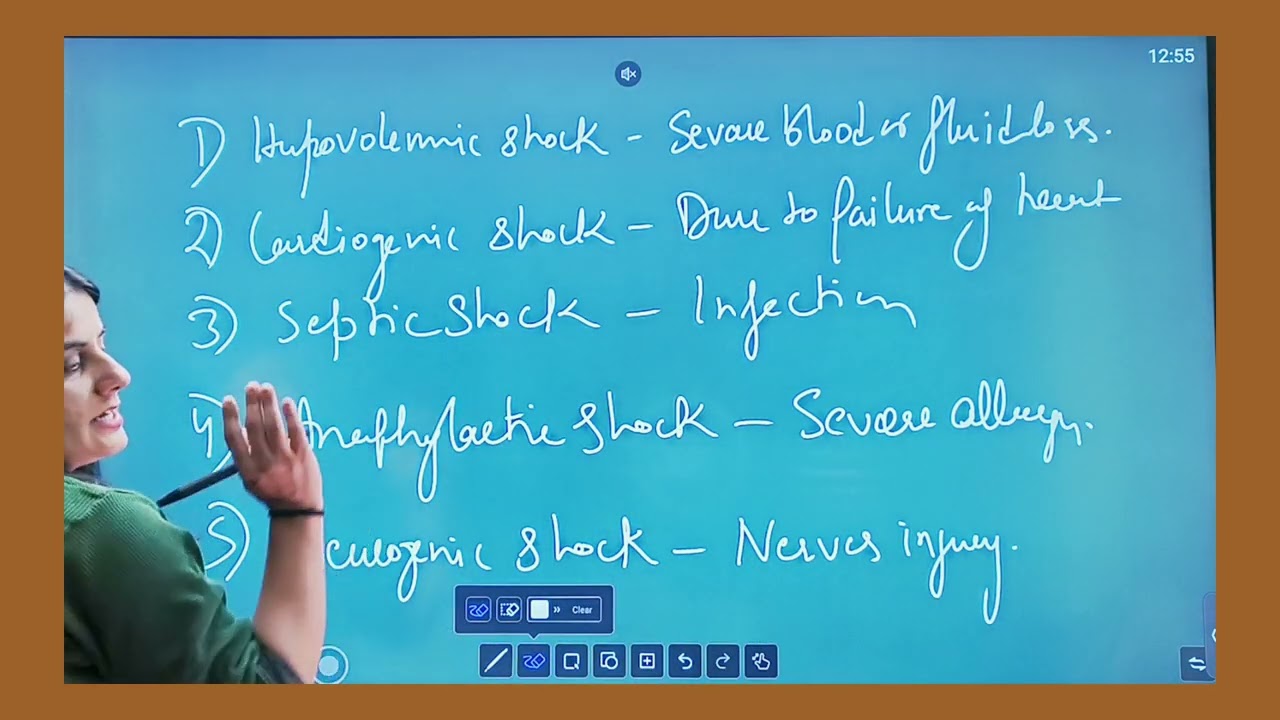 12:55
1) Hypovolemic shock - Severe blood or fluid loss.
2) Cardiogenic shock - Due to failure of heart
3) Septic shock - Infection
4) Anaphylactic shock - Severe allergy.
5) shock - Nerves injury.
Clear